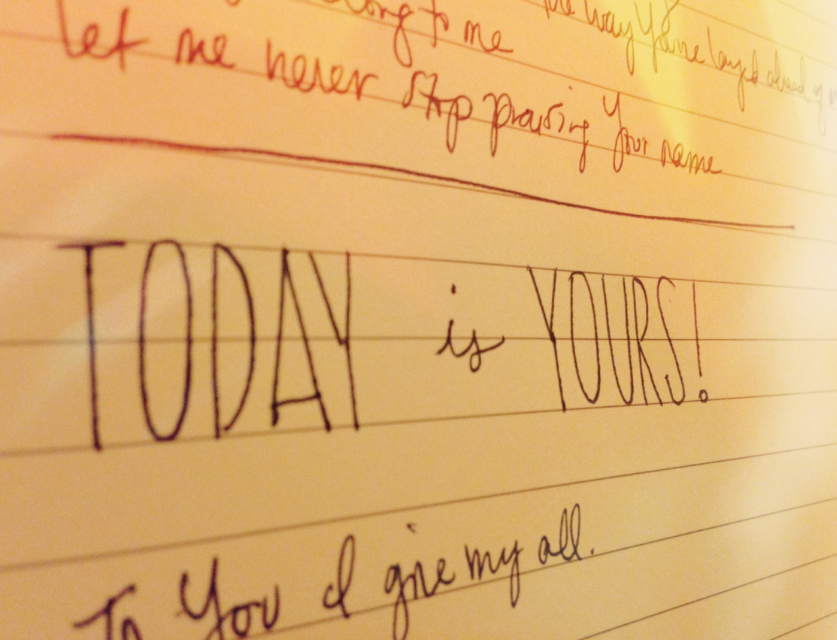 long to me the way You've layed ahead of
let me never stop praising Your name
TODAY is YOURS!
To You I give my all.